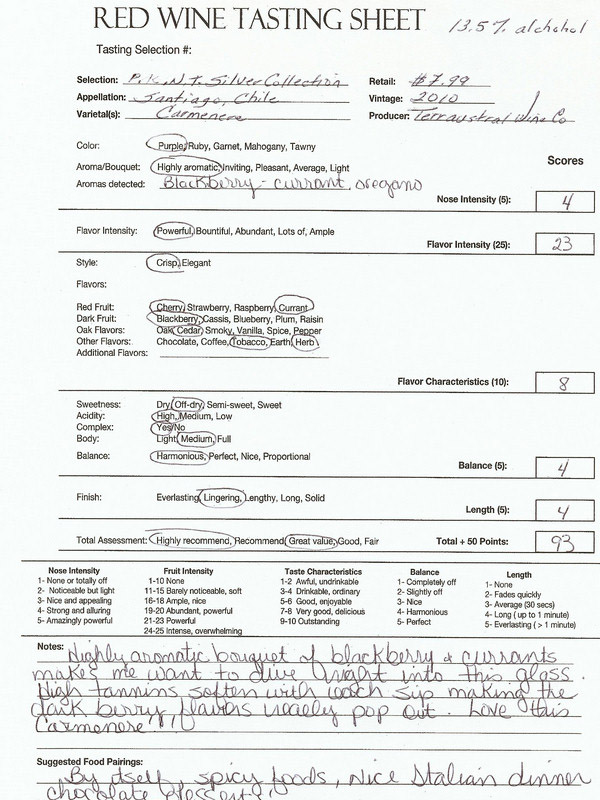 RED WINE TASTING SHEET 13.5% alchohol
Tasting Selection #:
Selection: P.K.N.T. Silver Collection Retail: $7.99
Appellation: Santiago, Chile Vintage: 2010
Varietal(s): Carmenere Producer: Terraustral Wine Co
Color: Purple, Ruby, Garnet, Mahogany, Tawny
Scores
Aroma/Bouquet: Highly aromatic, Inviting, Pleasant, Average, Light
Aromas detected: Blackberry - currant, oregano
Nose Intensity (5): 4
Flavor Intensity: Powerful, Bountiful, Abundant, Lots of, Ample
Flavor Intensity (25): 23
Style: Crisp, Elegant
Flavors:
Red Fruit: Cherry, Strawberry, Raspberry, Currant
Dark Fruit: Blackberry, Cassis, Blueberry, Plum, Raisin
Oak Flavors: Oak, Cedar, Smoky, Vanilla, Spice, Pepper
Other Flavors: Chocolate, Coffee, Tobacco, Earth, Herb
Additional Flavors:
Flavor Characteristics (10): 8
Sweetness: Dry, Off-dry, Semi-sweet, Sweet
Acidity: High, Medium, Low
Complex: Yes/No
Body: Light, Medium, Full
Balance: Harmonious, Perfect, Nice, Proportional
Balance (5): 4
Finish: Everlasting, Lingering, Lengthy, Long, Solid
Length (5): 4
Total Assessment: Highly recommend, Recommend, Great value, Good, Fair Total + 50 Points: 93
Nose Intensity Fruit Intensity Taste Characteristics Balance Length
1- None or totally off 1-10 None 1-2 Awful, undrinkable 1- Completely off 1- None
2- Noticeable but light 11-15 Barely noticeable, soft 3-4 Drinkable, ordinary 2- Slightly off 2- Fades quickly
3- Nice and appealing 16-18 Ample, nice 5-6 Good, enjoyable 3- Nice 3- Average (30 secs)
4- Strong and alluring 19-20 Abundant, powerful 7-8 Very good, delicious 4- Harmonious 4- Long ( up to 1 minute)
5- Amazingly powerful 21-23 Powerful 9-10 Outstanding 5- Perfect 5- Everlasting ( > 1 minute)
24-25 Intense, overwhelming
Notes: Highly aromatic bouquet of blackberry & currants
makes me want to dive right into this glass.
High tannins soften with each sip making the
dark berry flavors really pop out. Love this
Carmenere!!!
Suggested Food Pairings:
By itself, spicy foods, nice Italian dinner
chocolate dessert!!